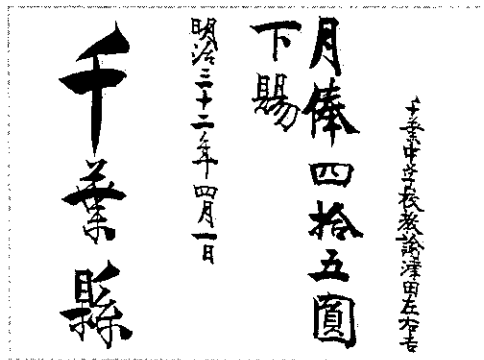 千葉中学校教諭津田左右吉
月俸四拾五圓
下賜
明治三十二年四月一日
千葉縣